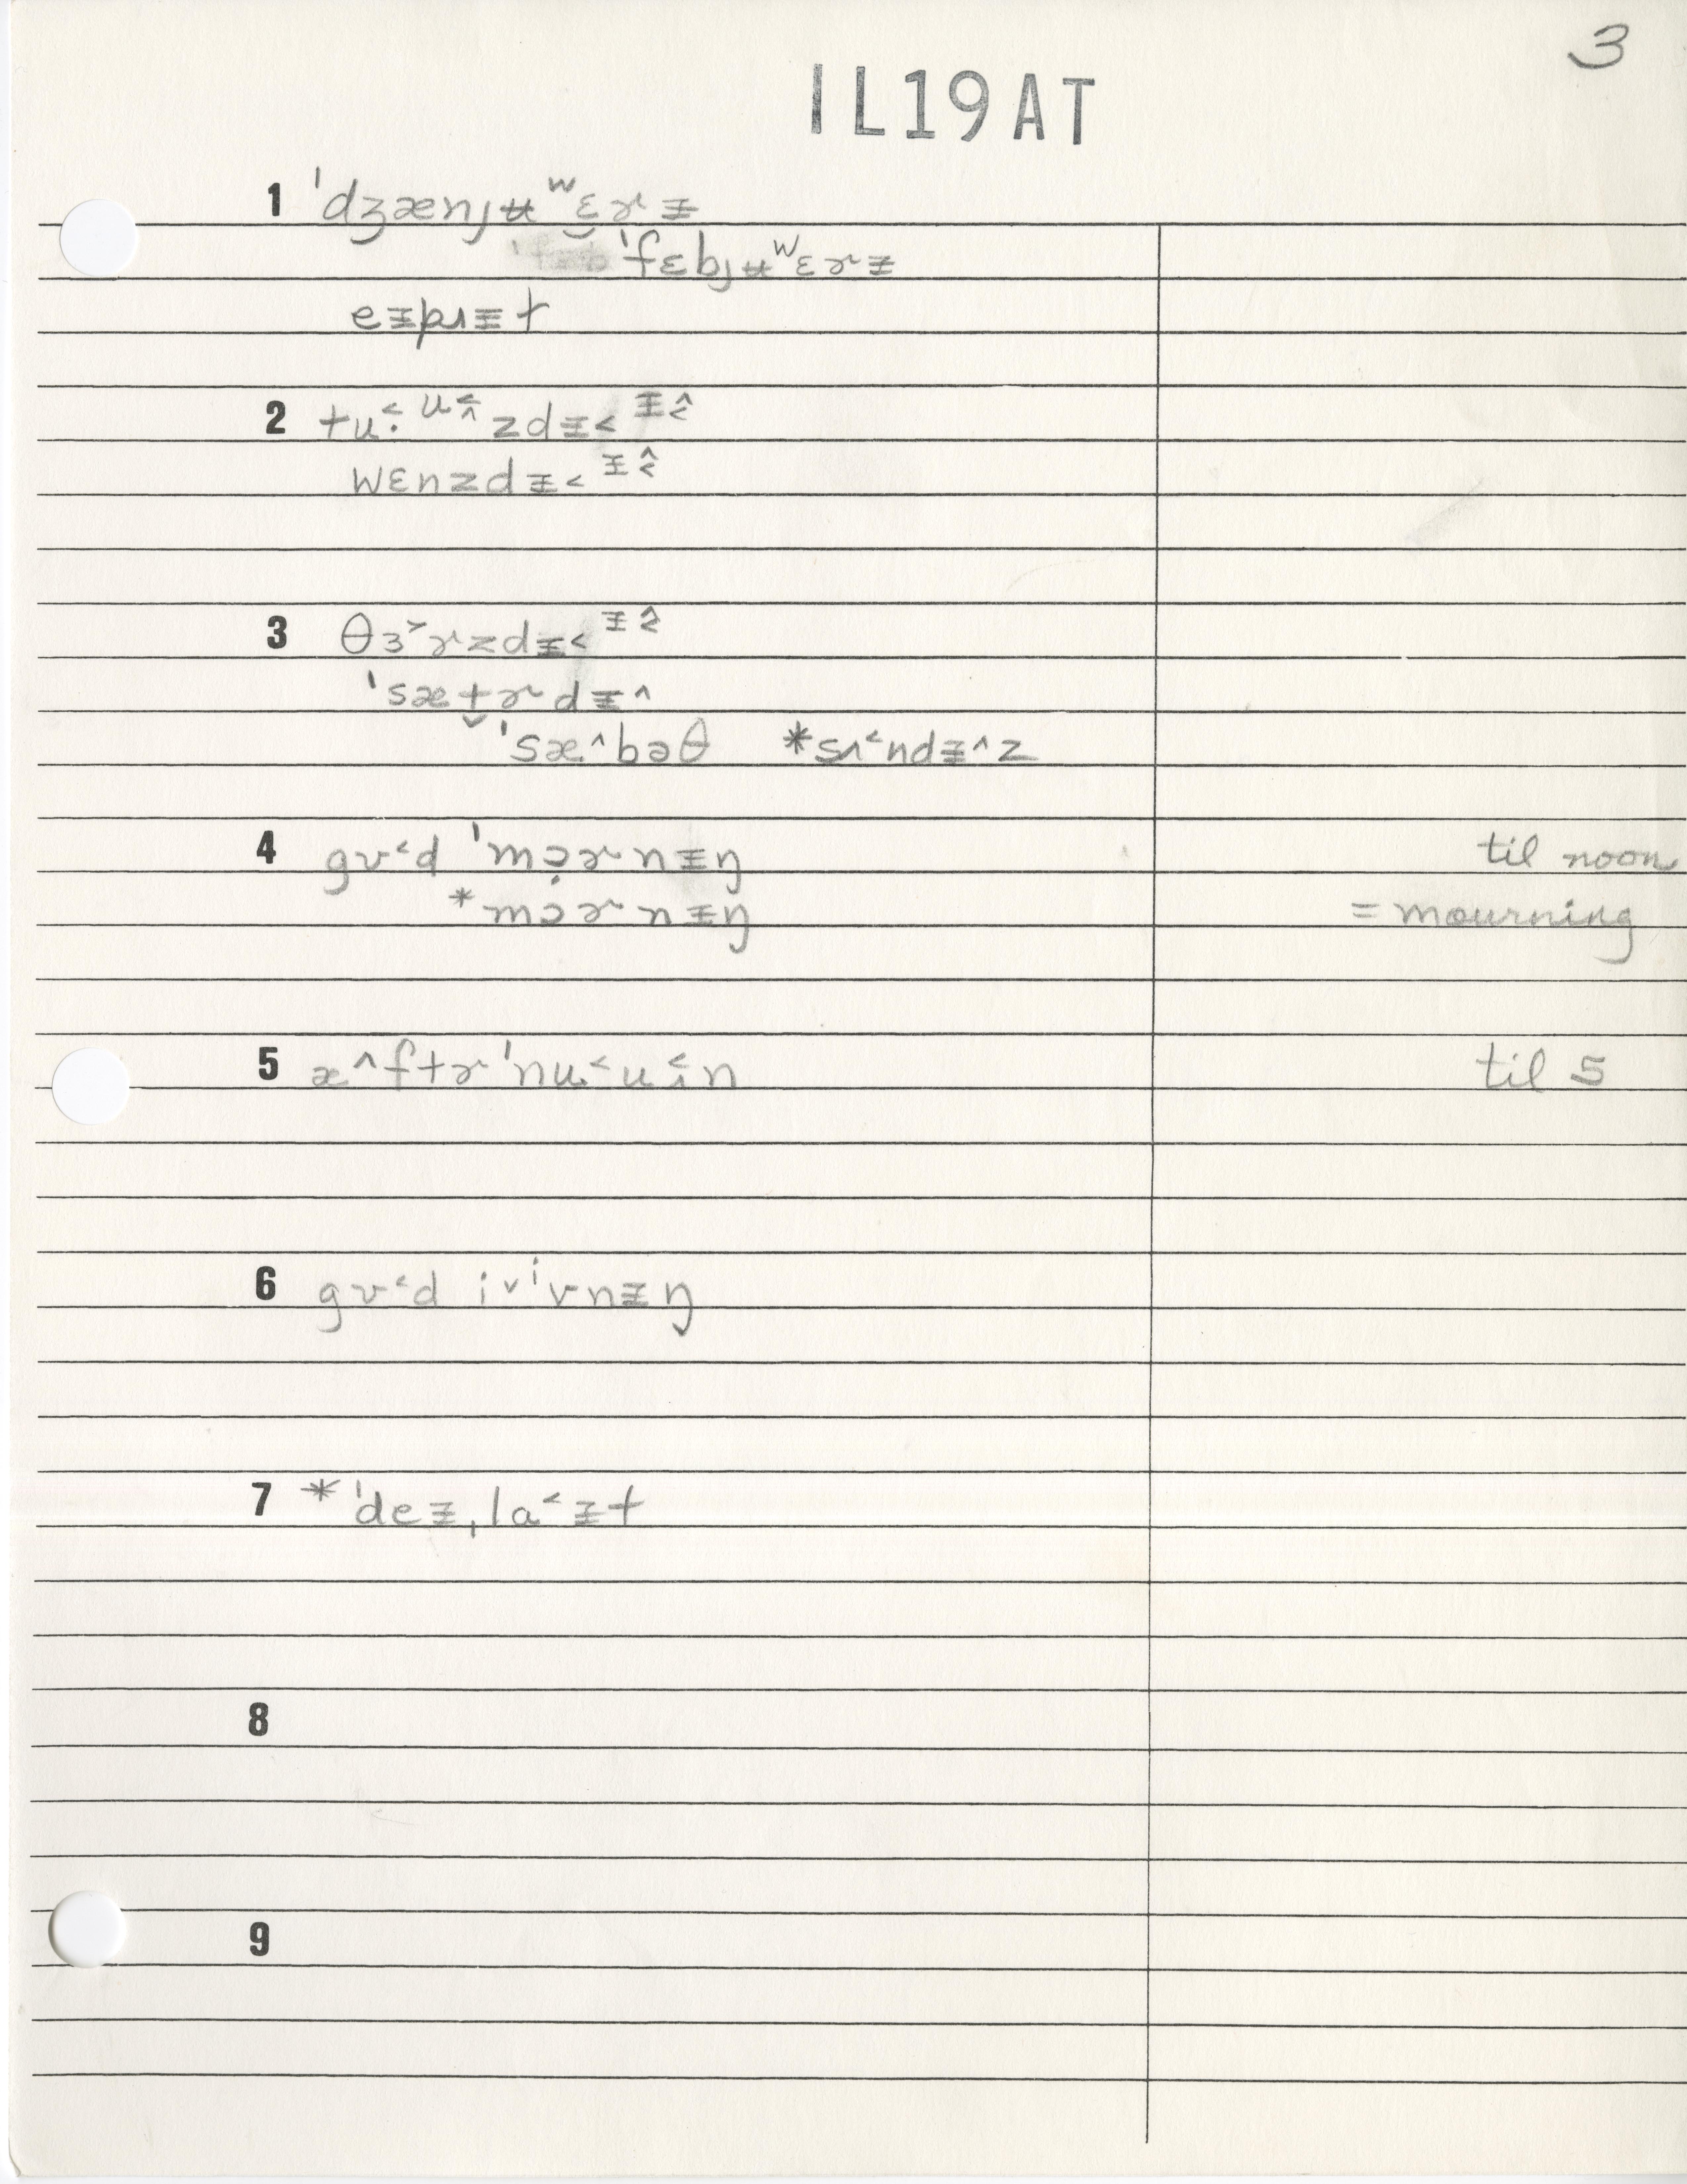 3
IL19AT
1 ˈdʒænjʉʷɛ̯ɚɪ̵
ˈfɛbjʉʷɛɚɪ̵
eɪ̵pɹɪ̵t
2 tu˂·ᵘ˂˄zdɪ̵˂ ɪ̵˄˂
wɛnzdɪ̵˂ ɪ̵˄˂
3 θɜ˃ɚzdɪ̵˂ ɪ̵˄˂
ˈsæt̬ɚdɪ̵˄
ˈsæ˄bəθ *sʌ˂ndɪ̵˄z
4 gʊ˂d ˈmɔ̣ɚnɪ̵ŋ til noon
*mɔɚnɪ̵ŋ = mourning
5 æ˄ftɚˈnu˂u˂˄n til 5
6 gʊ˂d i˅ⁱvnɪ̵ŋ
7 *ˈdeɪ̵ˌla˂ɪ̵t
8
9